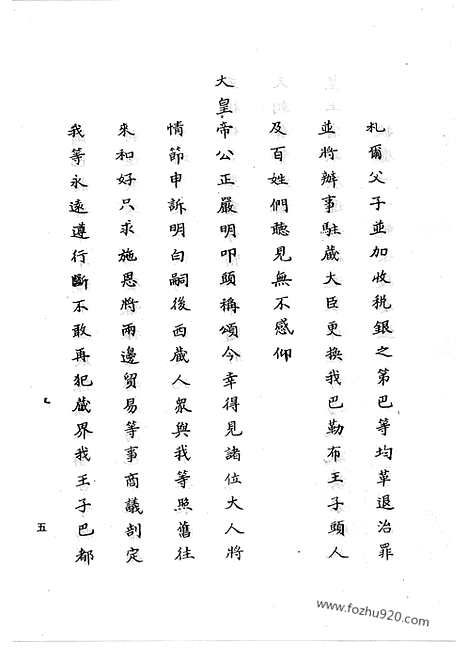 札爾父子並加收稅銀之第巴等均革退治罪
並將辦事駐藏大臣更換我巴勒布王子頭人
及百姓們聽見無不感仰
大皇帝公正嚴明叩頭稱頌今幸得見諸位大人將
情節申訴明白嗣後西藏人眾與我等照舊往
來和好只求施恩將兩邊貿易等事商議剖定
我等永遠遵行斷不敢再犯藏界我王子巴都
五
www.fozhu920.com